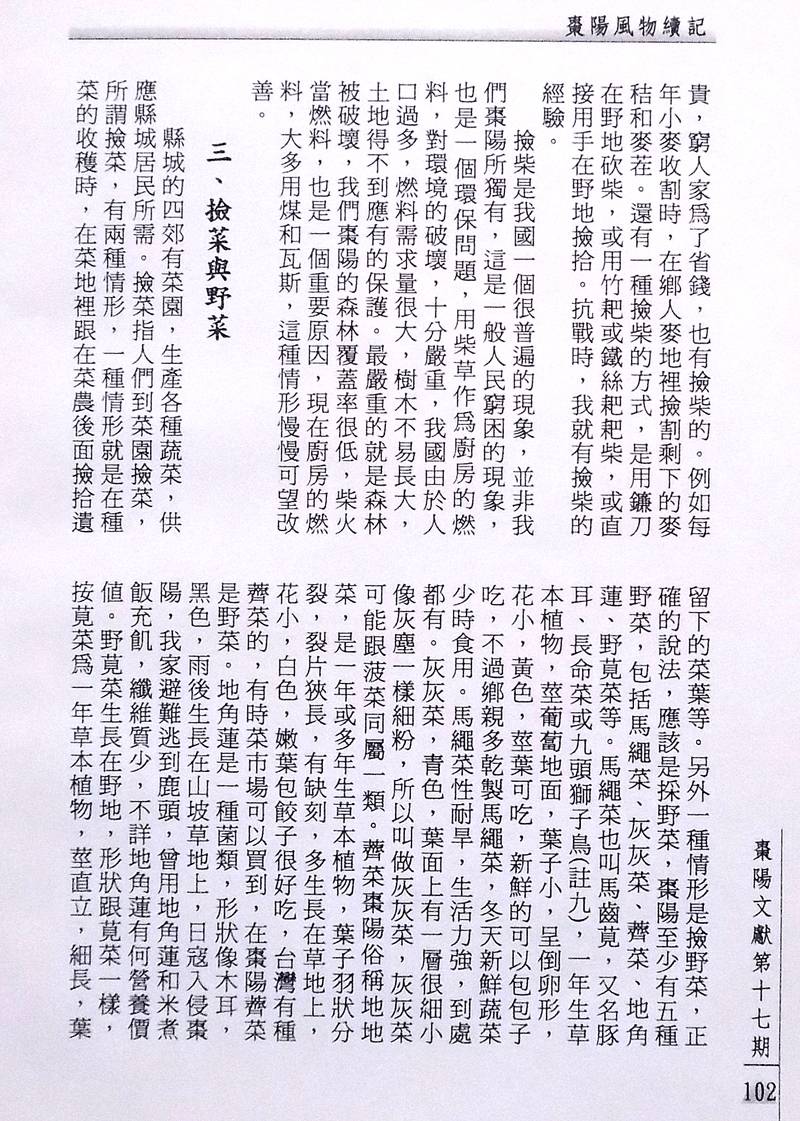 棗陽風物續記
貴，窮人家爲了省錢，也有撿柴的。例如每
年小麥收割時，在鄉人麥地裡撿割剩下的麥
秸和麥茬。還有一種撿柴的方式，是用鐮刀
在野地砍柴，或用竹耙或鐵絲耙耙柴，或直
接用手在野地撿拾。抗戰時，我就有撿柴的
經驗。
撿柴是我國一個很普遍的現象，並非我
們棗陽所獨有，這是一般人民窮困的現象，
也是一個環保問題，用柴草作爲廚房的燃
料，對環境的破壞，十分嚴重，我國由於人
口過多，燃料需求量很大，樹木不易長大，
土地得不到應有的保護。最嚴重的就是森林
被破壞，我們棗陽的森林覆蓋率很低，柴火
當燃料，也是一個重要原因，現在廚房的燃
料，大多用煤和瓦斯，這種情形慢慢可望改
善。
三、撿菜與野菜
縣城的四郊有菜園，生產各種蔬菜，供
應縣城居民所需。撿菜指人們到菜園撿菜，
所謂撿菜，有兩種情形，一種情形就是在種
菜的收穫時，在菜地裡跟在菜農後面撿拾遺
留下的菜葉等。另外一種情形是撿野菜，正
確的說法，應該是採野菜，棗陽至少有五種
野菜，包括馬繩菜、灰灰菜、薺菜、地角
蓮、野莧菜等。馬繩菜也叫馬齒莧，又名豚
耳、長命菜或九頭獅子鳥(註九)，一年生草
本植物，莖葡匐地面，葉子小，呈倒卵形，
花小，黃色，莖葉可吃，新鮮的可以包包子
吃，不過鄉親多乾製馬繩菜，冬天新鮮蔬菜
少時食用。馬繩菜性耐旱，生活力強，到處
都有。灰灰菜，青色，葉面上有一層很細小
像灰塵一樣細粉，所以叫做灰灰菜，灰灰菜
可能跟菠菜同屬一類。薺菜棗陽俗稱地地
菜，是一年或多年生草本植物，葉子羽狀分
裂，裂片狹長，有缺刻，多生長在草地上，
花小，白色，嫩葉包餃子很好吃，台灣有種
薺菜的，有時菜市場可以買到，在棗陽薺菜
是野菜。地角蓮是一種菌類，形狀像木耳，
黑色，雨後生長在山坡草地上，日寇入侵棗
陽，我家避難逃到鹿頭，曾用地角蓮和米煮
飯充飢，纖維質少，不詳地角蓮有何營養價
值。野莧菜生長在野地，形狀跟莧菜一樣，
按莧菜爲一年草本植物，莖直立，細長，葉
棗陽文獻第十七期
102